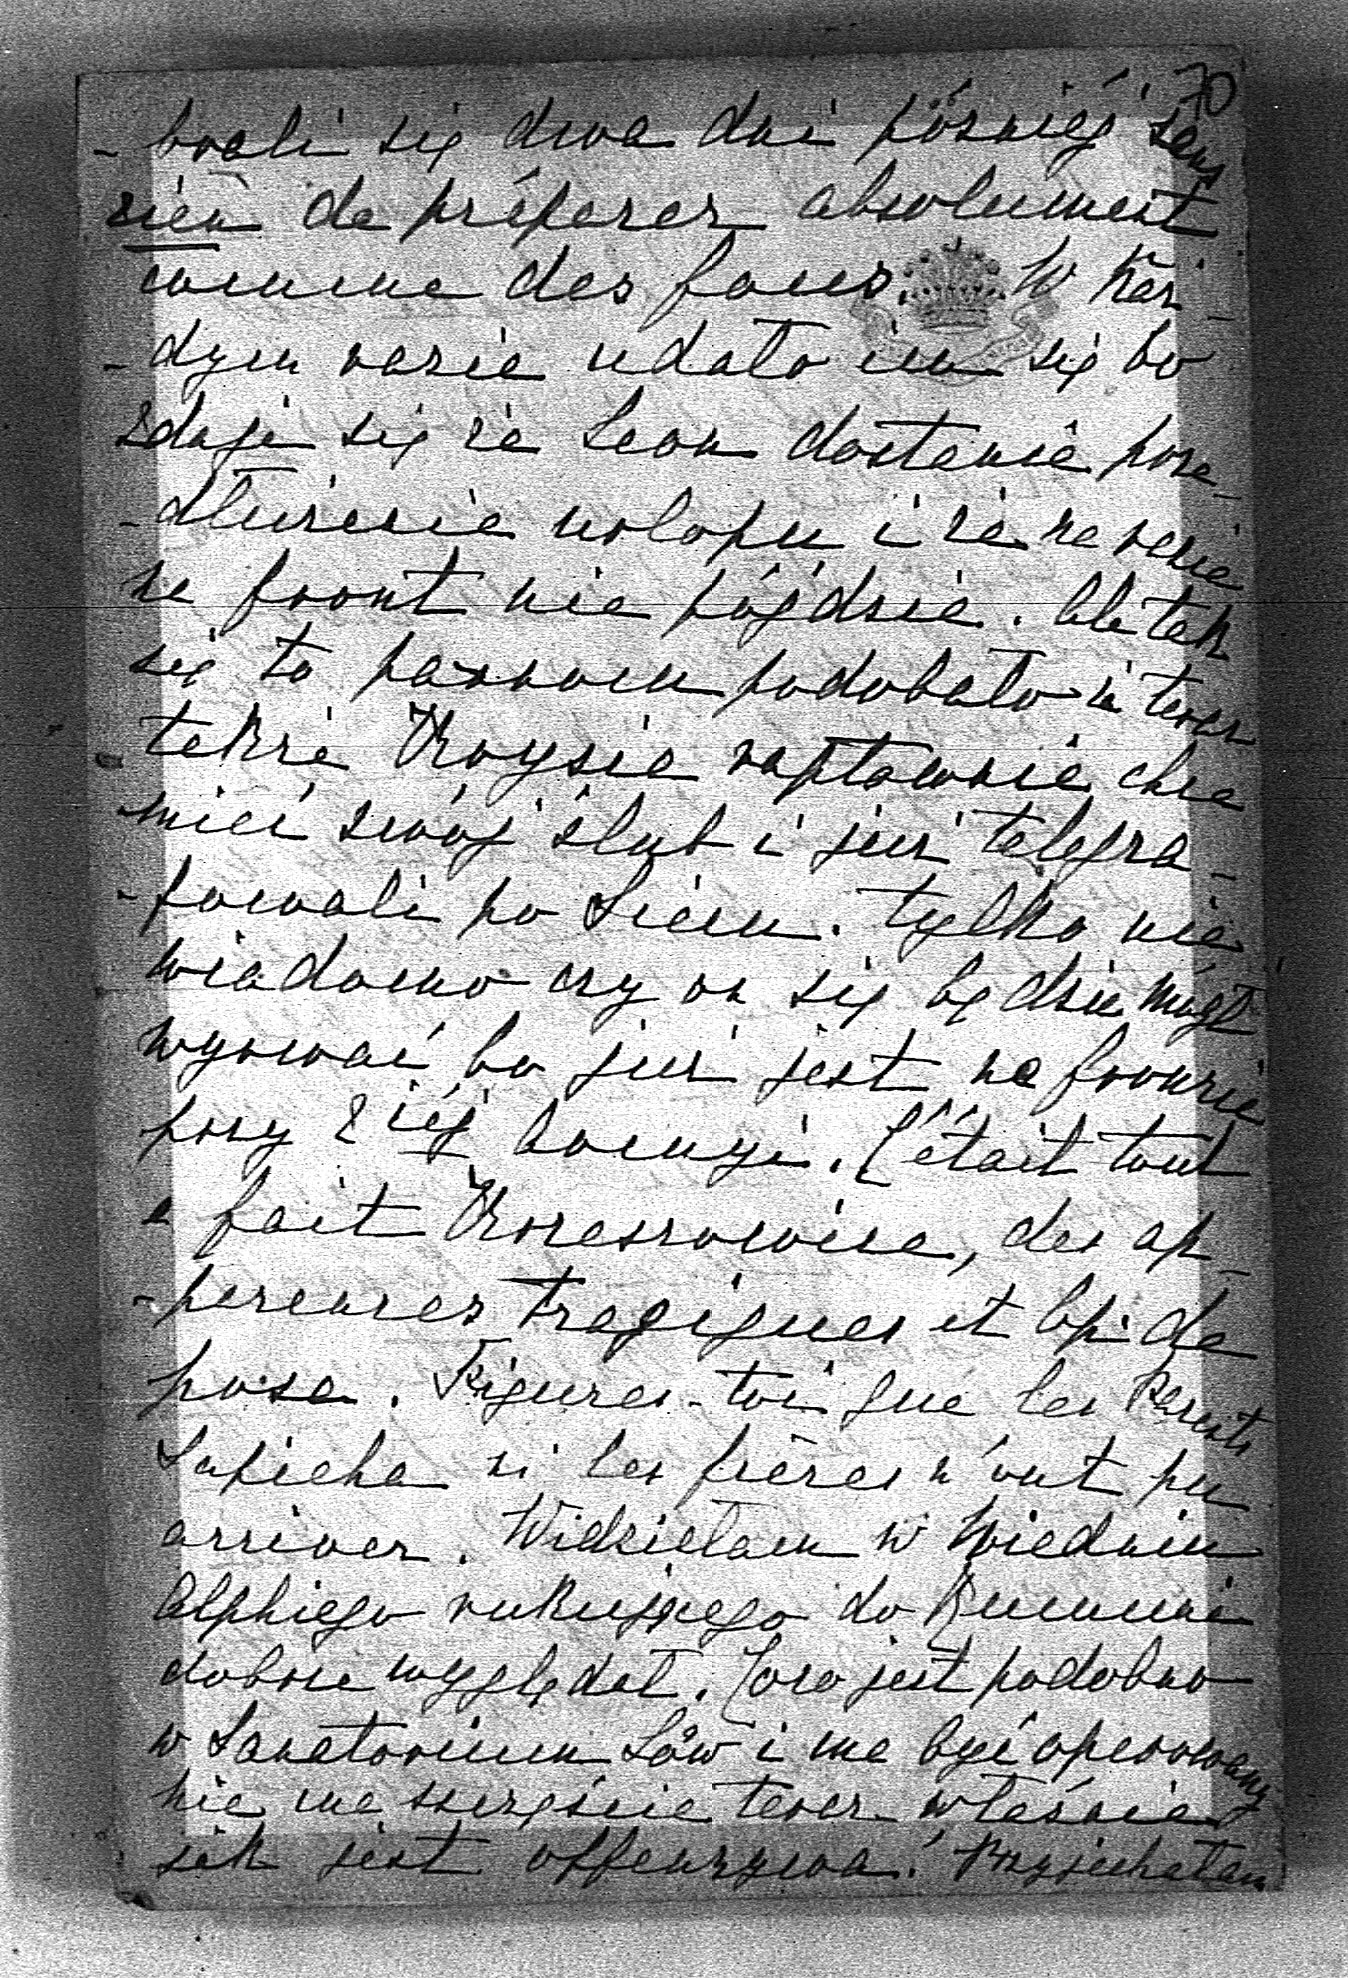 70
- brali się dwa dni później sans
rien de préparer absolument
comme des fous. W każ-
- dym razie udało im się bo
zdaje się że Leon dostanie prze-
- dłużenie urlopu i że na razie
na front nie pójdzie. Ale tak
się to parrom podobało że teraz
także Krzysia raptownie chce
mieć swój ślub i już telegra-
- fowali po Sieiu. Tylko nie
wiadomo czy on się będzie mógł
wyrwać bo już jest na froncie
przy z iéj bouyi. C'était tout
a fait Krzeszowice, des ap-
- parences tragiques et bp. de
pose. Figures-toi que les Parents
Sapieha ni les frères n'ont pu
arriver. Widziałam w Wiedniu
Alphiego rukującego do Rumuni
dobrze wyglądał. Jozo jest podobno
w Sanatorium Löw i ma być operowany
nie ma szczęście teraz właśnie
jak jest offenzywa! Przyjechałam